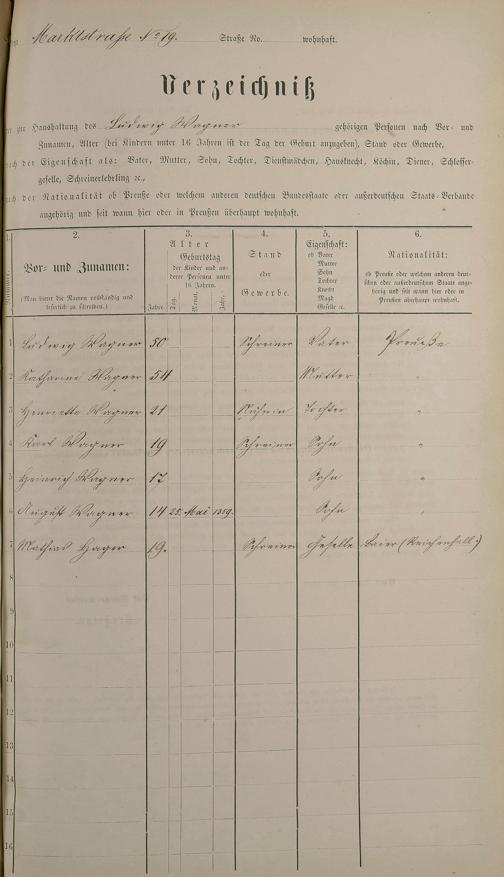 Marktstraße No 19. Straße No. wohnhaft.
Verzeichniß
der zur Haushaltung des Ludwig Wagner gehörigen Personen nach Vor- und
Zunamen, Alter (bei Kindern unter 16 Jahren ist der Tag der Geburt anzugeben), Stand oder Gewerbe,
nach der Eigenschaft als: Vater, Mutter, Sohn, Tochter, Dienstmädchen, Hausknecht, Köchin, Diener, Schlosser-
geselle, Schreinerlehrling ꝛc.,
nach der Nationalität ob Preuße oder welchem anderen deutschen Bundesstaate oder außerdeutschen Staats-Verbande
angehörig und seit wann hier oder in Preußen überhaupt wohnhaft.
1. 2. 3. 4. 5. 6.
Nummer.
Vor- und Zunamen:
(Man bittet die Namen vollständig und
leserlich zu schreiben.)
Alter
Geburtstag
der Kinder und an-
derer Personen unter
16 Jahren.
Jahre Tag. Monat. Jahr.
Stand
oder
Gewerbe.
Eigenschaft:
ob Vater
Mutter
Sohn
Tochter
Knecht
Magd
Geselle ꝛc.
Nationalität:
ob Preuße oder welchem anderen deut-
schen oder außerdeutschen Staate ange-
hörig und seit wann hier oder in
Preußen überhaupt wohnhaft.
1 Ludwig Wagner 50 Schreiner Vater Preuße
2 Katharine Wagner 54 Mutter "
3 Henriette Wagner 21 Tochter "
4 Karl Wagner 19 Schreiner Sohn "
5 Heinrich Wagner 17 Sohn "
6 August Wagner 14 25. Mai 1859. Sohn "
7 Mathias Hager 19. Schreiner Geselle Baier (Reichenhall)
8
9
10
11
12
13
14
15
16